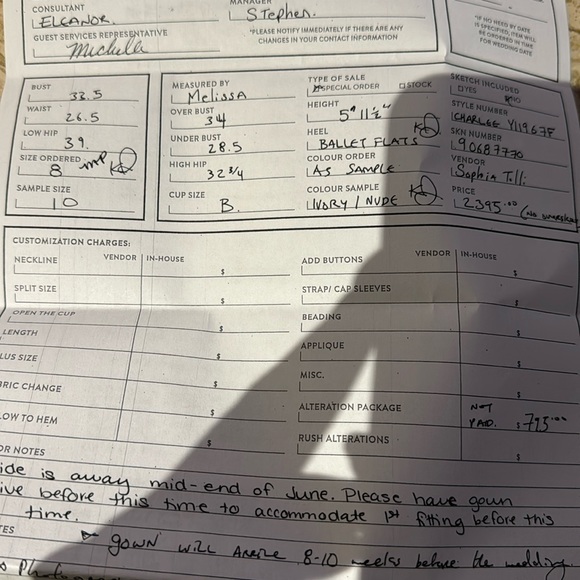 CONSULTANT
ELEANOR.
GUEST SERVICES REPRESENTATIVE
Michelle
MANAGER
Stephen.
*PLEASE NOTIFY IMMEDIATELY IF THERE ARE ANY
CHANGES IN YOUR CONTACT INFORMATION
*IF NO NEED BY DATE
IS SPECIFIED, ITEM WILL
BE ORDERED IN TIME
FOR WEDDING DATE
BUST
33.5
WAIST
26.5
LOW HIP
39.
SIZE ORDERED
8
SAMPLE SIZE
10
MEASURED BY
MelissA
OVER BUST
34
UNDER BUST
28.5
HIGH HIP
32 3/4
CUP SIZE
B.
TYPE OF SALE
SPECIAL ORDER STOCK
HEIGHT
5' 11 1/2"
HEEL
BALLET FLATS
COLOUR ORDER
AS SAMPLE
COLOUR SAMPLE
IVORY / NUDE
SKETCH INCLUDED
YES NO
STYLE NUMBER
CHARLEE Y11967F
SKN NUMBER
90687770
VENDOR
Sophia Tolli
PRICE
2395.00
CUSTOMIZATION CHARGES:
NECKLINE VENDOR IN-HOUSE
$
SPLIT SIZE
$
OPEN THE CUP
$
LENGTH
$
LUS SIZE
$
RIC CHANGE
$
LOW TO HEM
$
ADD BUTTONS VENDOR IN-HOUSE
$
STRAP/ CAP SLEEVES
$
BEADING
$
APPLIQUE
$
MISC.
$
ALTERATION PACKAGE NOT
PAID. $795.00
RUSH ALTERATIONS
$
OR NOTES
ide is away mid-end of June. Please have gown
ive before this time to accommodate 1st fitting before this
time.
TES
gown will Arrive 8-10 weeks before the wedding.